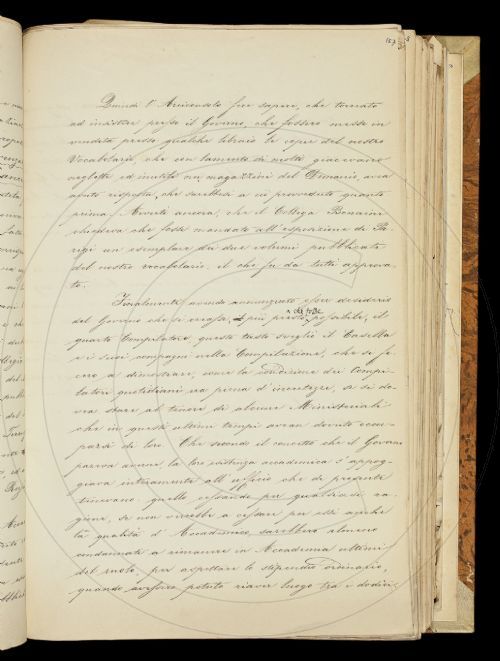 157
Quindi l'Arciconsolo fece sapere, che tornato
ad insistere presso il Governo, che fossero messe in
vendita presso qualche libraio le copie del nostro
Vocabolario, che con lamento di molti giacevano
neglette ed inutili nei magazzini del Demanio, avea
avuto risposta, che sarebbesi a ciò provveduto quanto
prima. Avvertì ancora, che il Collega Bonaini
chiedeva che fosse mandato all'esposizione di Pa-
rigi un esemplare dei due volumi pubblicati
del nostro vocabolario, il che fu da tutti approva-
to.
Finalmente avendo annunziato esser desiderio
del Governo che si creasse, il più presto che fosse possibile, il
quarto Compilatore, questo tasto svegliò il Casella
e i suoi compagni nella Compilazione, che si fe-
cero a dimostrare, come la condizione dei Compi-
latori quotidiani era piena d'incertezze, se si do-
vea stare al tenore di alcune Ministeriali
che in questi ultimi tempi avean dovuto occu-
parsi di loro. Che secondo il concetto che il Governo
pareva averne, la loro esistenza accademica s'appog-
giava interamente all'ufficio che di presente
tenevano: quello cessando per qualsiasi ca-
gione, se non verrebbe a cessare per essi anche
la qualità d'Accademico, sarebbero almeno
condannati a rimanere in Accademia ultimi
del ruolo, per aspettare lo stipendio ordinario,
quando avessero potuto riaver luogo tra i dodici,